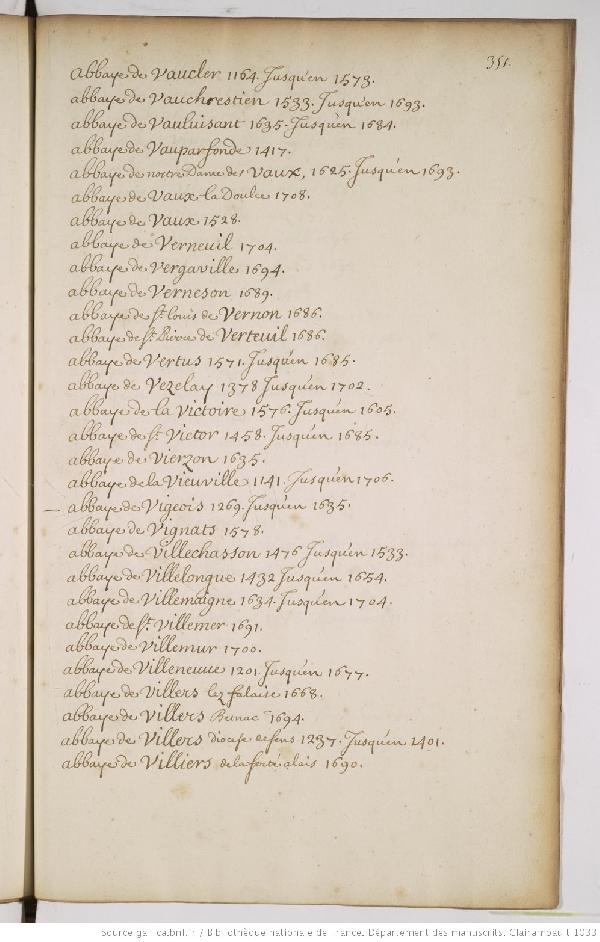 351.
abbaye de Vaucler 1164. Jusqu'en 1573.
abbaye de Vauchrestien 1533. Jusqu'en 1693.
abbaye de Vauluisant 1635. Jusqu'en 1684.
abbaye de Vauparfonde 1417.
abbaye de nostre Dame des Vaux, 1625. Jusqu'en 1693.
abbaye de Vaux la Doulce 1708.
abbaye de Vaux 1528.
abbaye de Verneuil 1704.
abbaye de Vergaville 1694.
abbaye de Verneson 1689.
abbaye de St. Louis de Vernon 1686.
abbaye de St. de Verteuil 1686.
abbaye de Vertus 1571. Jusqu'en 1685.
abbaye de Vezelay 1378 Jusqu'en 1702.
abbaye de la Victoire 1576. Jusqu'en 1605.
abbaye de St. Victor 1458. Jusqu'en 1685.
abbaye de Vierzon 1635.
abbaye de la Vieuville 1141. Jusqu'en 1706.
abbaye de Vigeois 1269. Jusqu'en 1635.
abbaye de Vignats 1578.
abbaye de Villechasson 1476 Jusqu'en 1533.
abbaye de Villelongue 1432 Jusqu'en 1654.
abbaye de Villemaigne 1634. Jusqu'en 1704.
abbaye de St. Villemer 1691.
abbaye de Villemur 1700.
abbaye de Villeneuve 1201. Jusqu'en 1677.
abbaye de Villers lez falaise 1668.
abbaye de Villers 1694.
abbaye de Villers diocese de sens 1237. Jusqu'en 1401.
abbaye de Villiers de la ferté alais 1690.
Source gallica.bnf.fr / Bibliothèque nationale de France. Département des manuscrits. Clairambault 1033